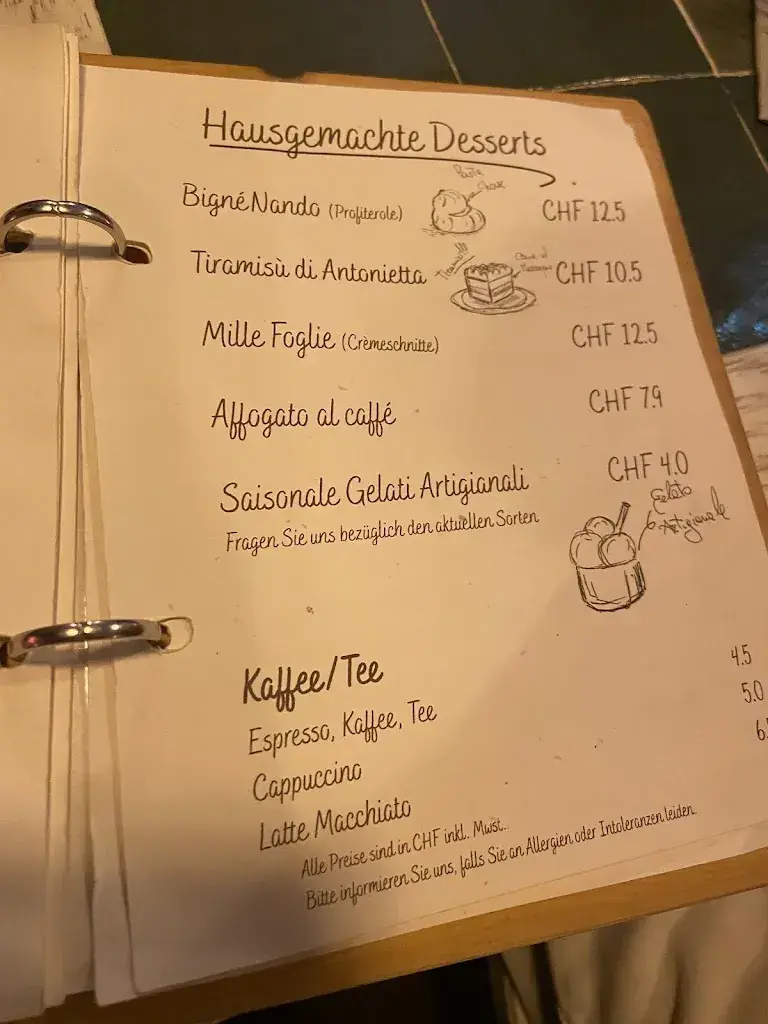 Hausgemachte Desserts
Bigné Nando (Profiterole) CHF 12.5
Pasta Choux
Tiramisù di Antonietta CHF 10.5
Tiramisù
Mille Foglie (Crèmeschnitte) CHF 12.5
Affogato al caffé CHF 7.9
Saisonale Gelati Artigianali CHF 4.0
Fragen Sie uns bezüglich den aktuellen Sorten
Gelato
Artigianale
Kaffee/Tee
Espresso, Kaffee, Tee 4.5
Cappuccino 5.0
Latte Macchiato
Alle Preise sind in CHF inkl. Mwst..
Bitte informieren Sie uns, falls Sie an Allergien oder Intoleranzen leiden.